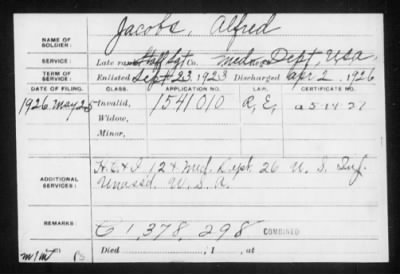 Jacobs, Alfred
NAME OF SOLDIER:
SERVICE: Late rank Staff Sgt Co. Med. Dept, USA,
TERM OF SERVICE: Enlisted Sept 23, 1923 Discharged Apr 2, 1926
DATE OF FILING. CLASS. APPLICATION NO. LAW. CERTIFICATE NO.
1926 May 25 Invalid, 1541010 R, E,
Widow,
Minor,
ADDITIONAL SERVICES: 12 & Med. Dept. 26 U. S. Inf.
Unassd. U. S. A.
REMARKS: C 1,378,298 COMBINED
Died , 1 , at